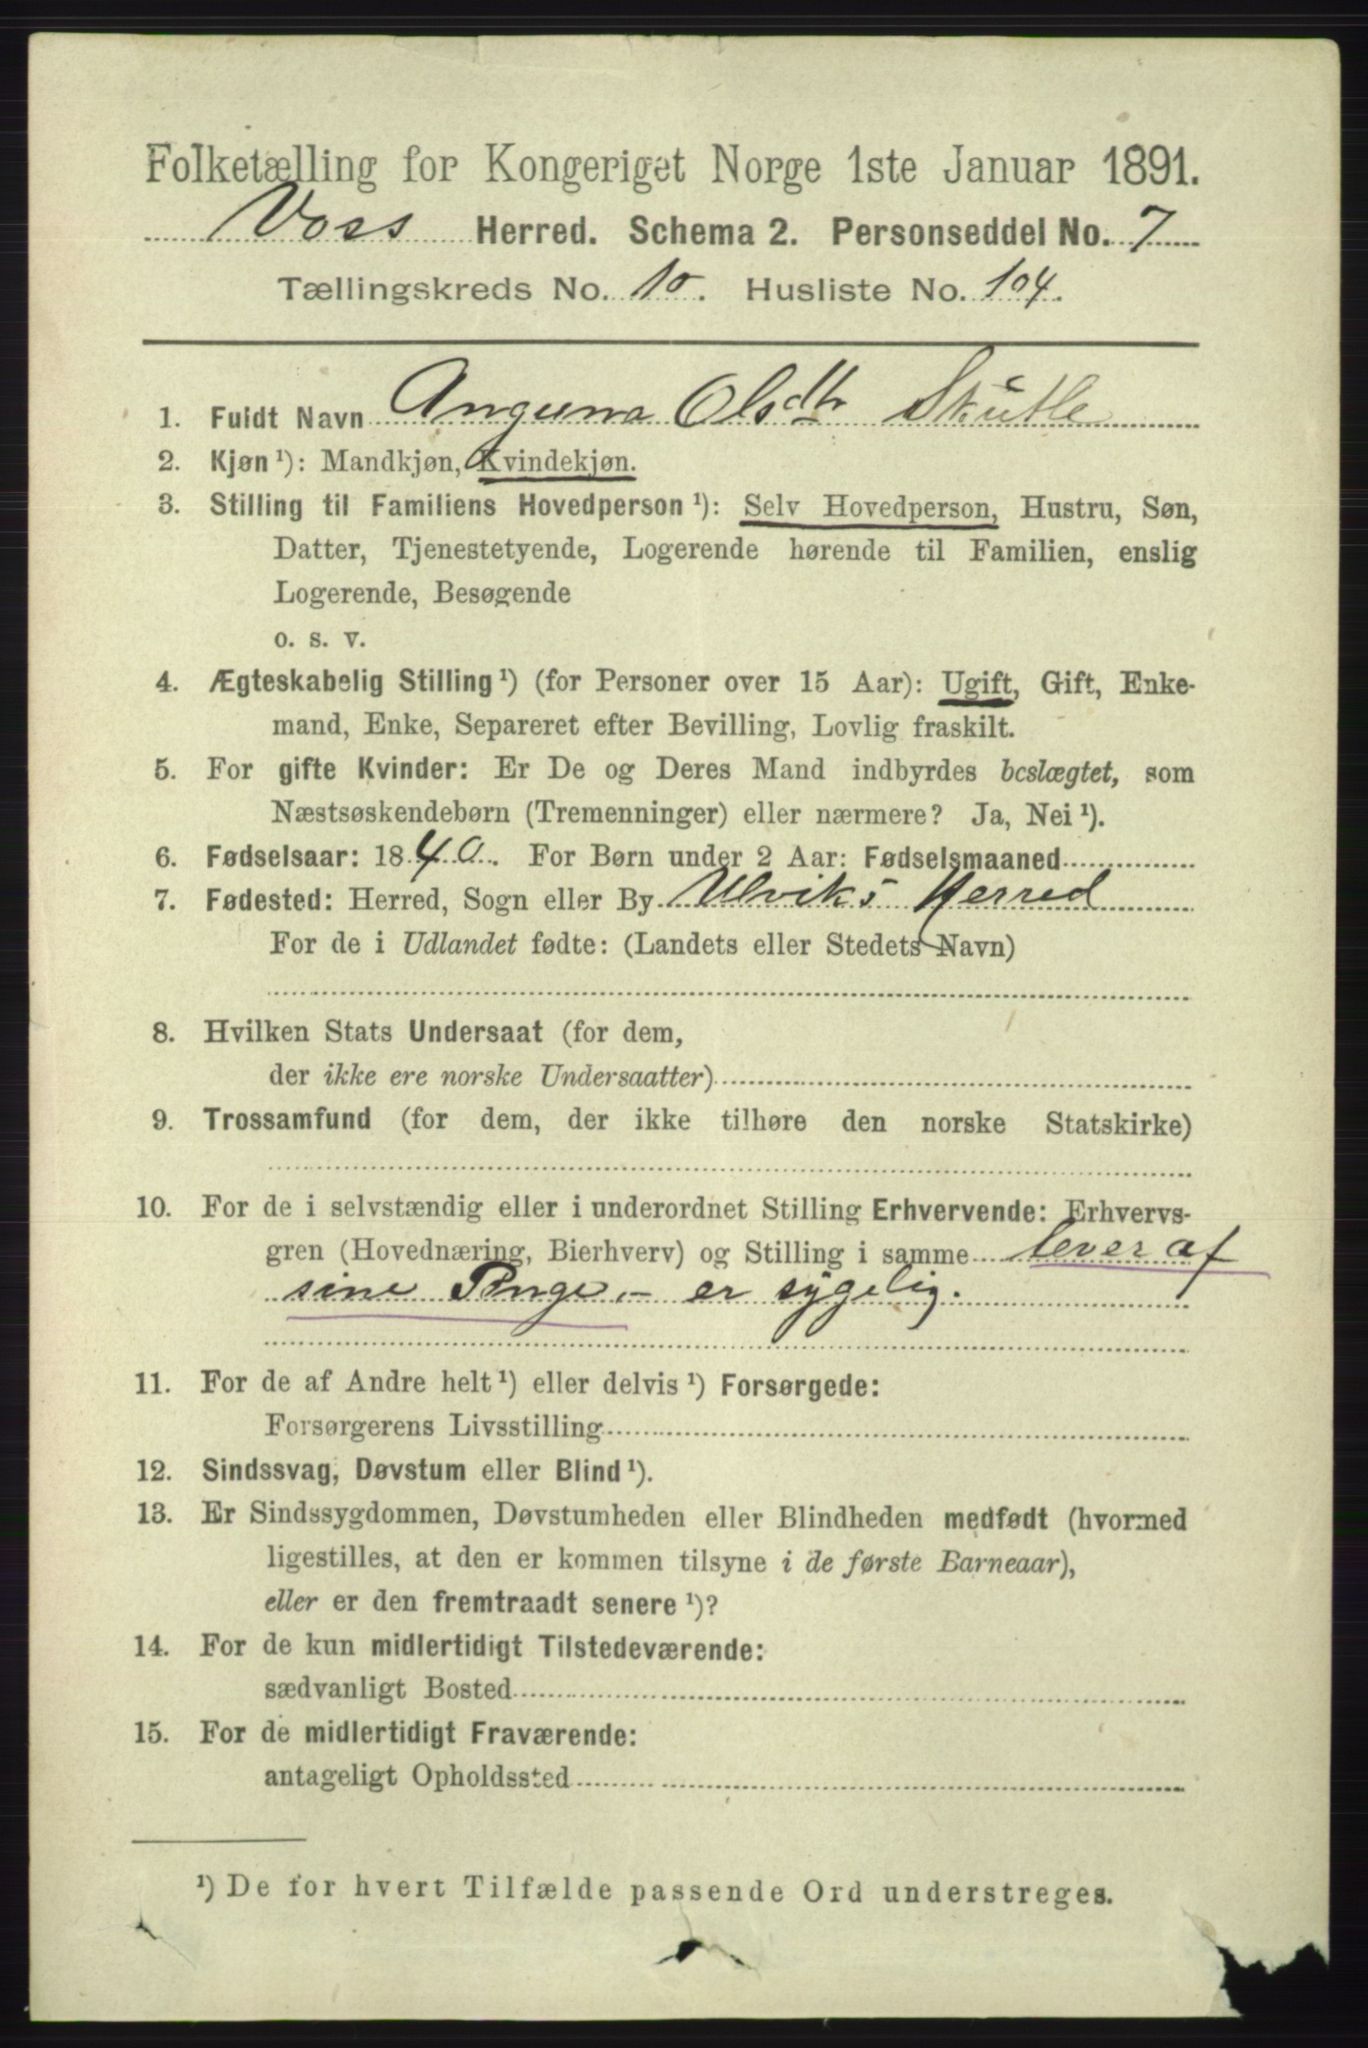 Folketælling for Kongeriget Norge 1ste Januar 1891.
Voss Herred. Schema 2. Personseddel No. 7
Tællingskreds No. 10. Husliste No. 104.
1. Fuldt Navn Anguna Olsdtr Skutle
2. Kjøn ¹): Mandkjøn, Kvindekjøn.
3. Stilling til Familiens Hovedperson ¹): Selv Hovedperson, Hustru, Søn,
Datter, Tjenestetyende, Logerende hørende til Familien, enslig
Logerende, Besøgende
o. s. v.
4. Ægteskabelig Stilling ¹) (for Personer over 15 Aar): Ugift, Gift, Enke-
mand, Enke, Separeret efter Bevilling, Lovlig fraskilt.
5. For gifte Kvinder: Er De og Deres Mand indbyrdes beslægtet, som
Næstsøskendebørn (Tremenninger) eller nærmere? Ja, Nei ¹).
6. Fødselsaar: 1840. For Børn under 2 Aar: Fødselsmaaned
7. Fødested: Herred, Sogn eller By Ulviks Herred
For de i Udlandet fødte: (Landets eller Stedets Navn)
8. Hvilken Stats Undersaat (for dem,
der ikke ere norske Undersaatter)
9. Trossamfund (for dem, der ikke tilhøre den norske Statskirke)
10. For de i selvstændig eller i underordnet Stilling Erhvervende: Erhvervs-
gren (Hovednæring, Bierhverv) og Stilling i samme lever af
sine Penge, – er sygelig.
11. For de af Andre helt ¹) eller delvis ¹) Forsørgede:
Forsørgerens Livsstilling
12. Sindssvag, Døvstum eller Blind ¹).
13. Er Sindssygdommen, Døvstumheden eller Blindheden medfødt (hvormed
ligestilles, at den er kommen tilsyne i de første Barneaar),
eller er den fremtraadt senere ¹)?
14. For de kun midlertidigt Tilstedeværende:
sædvanligt Bosted
15. For de midlertidigt Fraværende:
antageligt Opholdssted
¹) De for hvert Tilfælde passende Ord understreges.